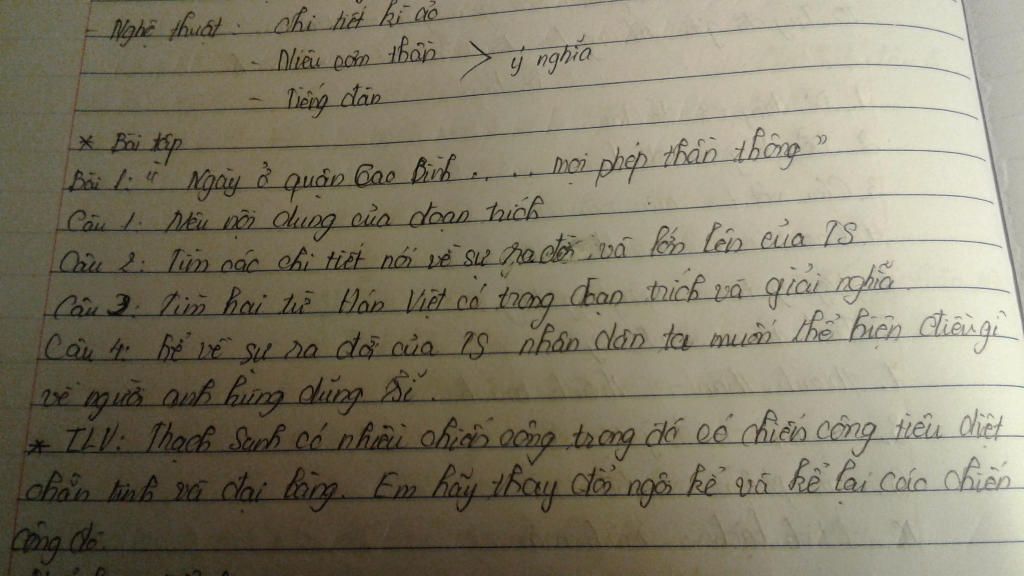 - Nghệ thuật: chi tiết kì ảo
- Niêu cơm thần > ý nghĩa
- Tiếng đàn
* Bài tập
Bài 1: " Ngày ở quận Cao Bình . . . . mọi phép thần thông "
Câu 1: Nêu nội dung của đoạn trích
Câu 2: Tìm các chi tiết nói về sự ra đời và lớn lên của TS
Câu 3: Tìm hai từ Hán Việt có trong đoạn trích và giải nghĩa.
Câu 4: kể về sự ra đời của TS nhân dân ta muốn thể hiện điều gì
về người anh hùng dũng sĩ.
* TLV: Thạch Sanh có nhiều chiến công trong đó có chiến công tiêu diệt
chằn tinh và đại bàng. Em hãy thay đổi ngôi kể và kể lại các chiến
công đó.